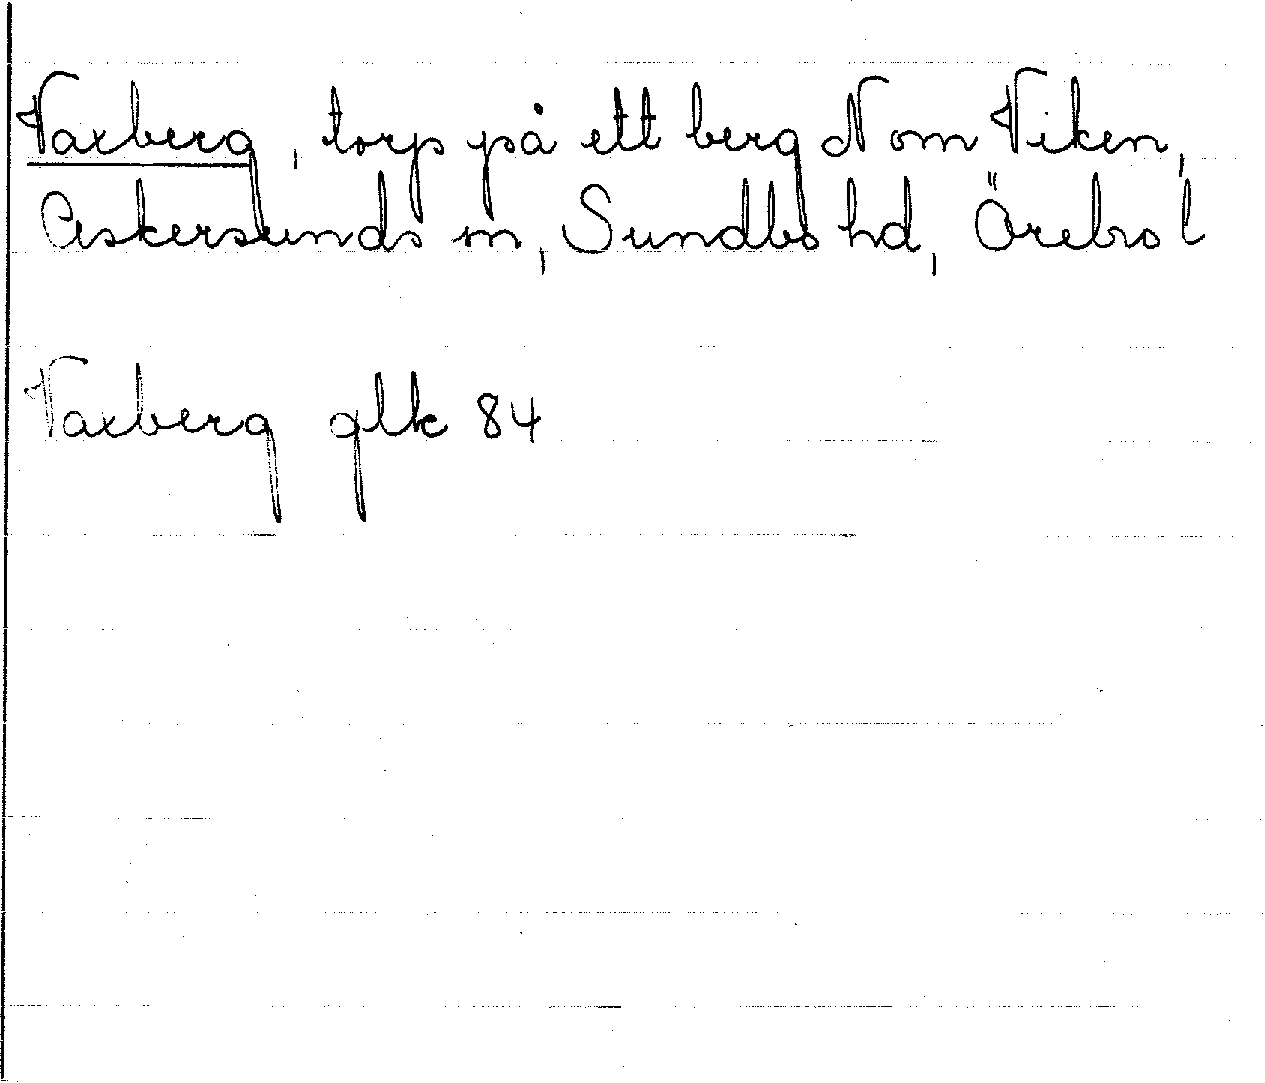 Vaxberg, torp på ett berg N om Viken,
Askersunds sn, Sundbo hd, Örebro l
Vaxberg glk 84